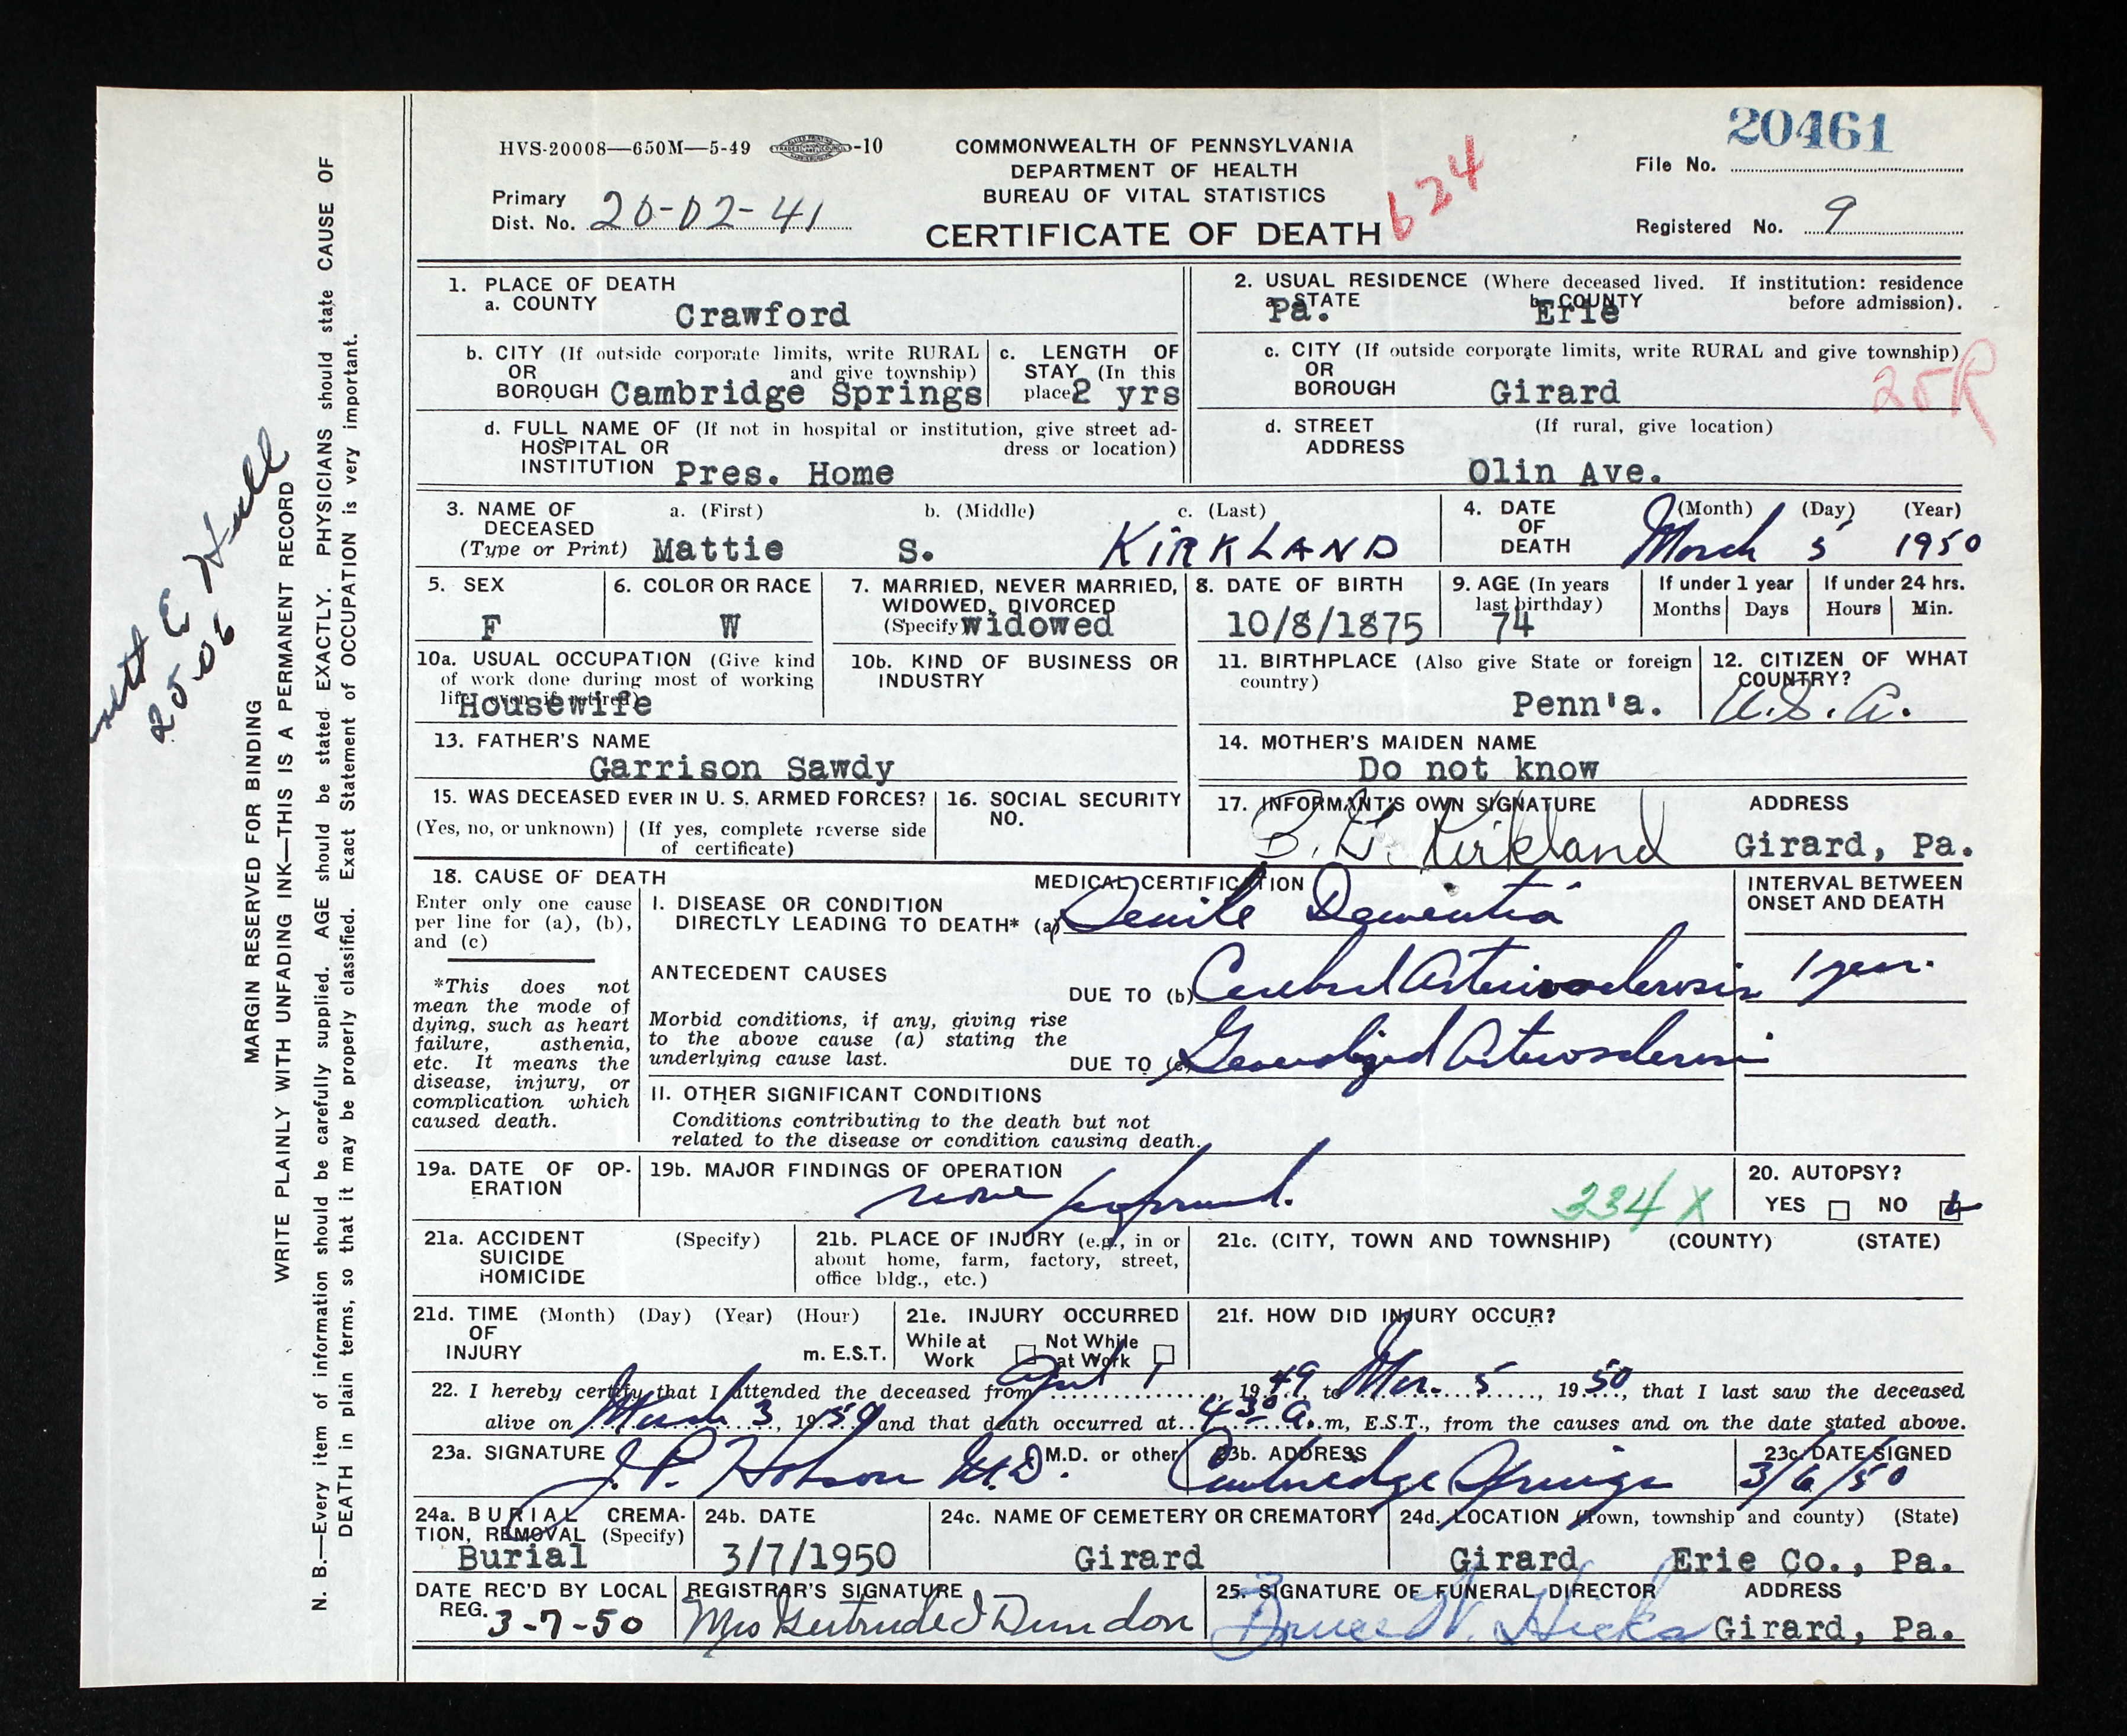 20461
HVS-20008—650M—5-49 -10
COMMONWEALTH OF PENNSYLVANIA
DEPARTMENT OF HEALTH
BUREAU OF VITAL STATISTICS
CERTIFICATE OF DEATH
624
File No.
Primary
Dist. No. 20-02-41
Registered No. 9
1. PLACE OF DEATH
a. COUNTY Crawford
2. USUAL RESIDENCE (Where deceased lived. If institution: residence before admission).
a. STATE Pa. b. COUNTY Erie
b. CITY (If outside corporate limits, write RURAL
OR and give township)
BOROUGH Cambridge Springs
c. LENGTH OF
STAY (In this
place 2 yrs
c. CITY (If outside corporate limits, write RURAL and give township)
OR
BOROUGH Girard
25R
d. FULL NAME OF (If not in hospital or institution, give street ad-
HOSPITAL OR dress or location)
INSTITUTION Pres. Home
d. STREET (If rural, give location)
ADDRESS
Olin Ave.
3. NAME OF a. (First) b. (Middle) c. (Last)
DECEASED
(Type or Print) Mattie S. KIRKLAND
4. DATE (Month) (Day) (Year)
OF
DEATH March 5 1950
5. SEX
F
6. COLOR OR RACE
W
7. MARRIED, NEVER MARRIED,
WIDOWED, DIVORCED
(Specify widowed
8. DATE OF BIRTH
10/8/1875
9. AGE (In years
last birthday)
74
If under 1 year
Months Days
If under 24 hrs.
Hours Min.
10a. USUAL OCCUPATION (Give kind
of work done during most of working
life, even if retired)
Housewife
10b. KIND OF BUSINESS OR
INDUSTRY
11. BIRTHPLACE (Also give State or foreign
country)
Penn'a.
12. CITIZEN OF WHAT
COUNTRY?
U.S.A.
13. FATHER'S NAME
Garrison Sawdy
14. MOTHER'S MAIDEN NAME
Do not know
15. WAS DECEASED EVER IN U. S. ARMED FORCES?
(Yes, no, or unknown) (If yes, complete reverse side
of certificate)
16. SOCIAL SECURITY
NO.
17. INFORMANT'S OWN SIGNATURE ADDRESS
Kirkland Girard, Pa.
18. CAUSE OF DEATH
Enter only one cause
per line for (a), (b),
and (c)
*This does not
mean the mode of
dying, such as heart
failure, asthenia,
etc. It means the
disease, injury, or
complication which
caused death.
MEDICAL CERTIFICATION
I. DISEASE OR CONDITION
DIRECTLY LEADING TO DEATH* (a) Senile Dementia
ANTECEDENT CAUSES
DUE TO (b) Cerebral Arteriosclerosis
Morbid conditions, if any, giving rise
to the above cause (a) stating the
underlying cause last.
DUE TO (c) Generalized Arteriosclerosis
II. OTHER SIGNIFICANT CONDITIONS
Conditions contributing to the death but not
related to the disease or condition causing death.
INTERVAL BETWEEN
ONSET AND DEATH
1 year.
19a. DATE OF OP-
ERATION
19b. MAJOR FINDINGS OF OPERATION
none performed.
334 X
20. AUTOPSY?
YES NO
21a. ACCIDENT (Specify)
SUICIDE
HOMICIDE
21b. PLACE OF INJURY (e.g., in or
about home, farm, factory, street,
office bldg., etc.)
21c. (CITY, TOWN AND TOWNSHIP) (COUNTY) (STATE)
21d. TIME (Month) (Day) (Year) (Hour)
OF
INJURY m. E.S.T.
21e. INJURY OCCURRED
While at Work Not While at Work
21f. HOW DID INJURY OCCUR?
22. I hereby certify that I attended the deceased from April 1, 1949, to Mar. 5, 1950, that I last saw the deceased
alive on March 3, 1950 and that death occurred at 4 30 a.m, E.S.T., from the causes and on the date stated above.
23a. SIGNATURE J. P. Hobson M.D. M.D. or other
23b. ADDRESS
Cambridge Springs
23c. DATE SIGNED
3/6/50
24a. BURIAL CREMA-
TION, REMOVAL (Specify)
Burial
24b. DATE
3/7/1950
24c. NAME OF CEMETERY OR CREMATORY
Girard
24d. LOCATION (Town, township and county) (State)
Girard Erie Co., Pa.
DATE REC'D BY LOCAL
REG. 3-7-50
REGISTRAR'S SIGNATURE
Mrs Gertrude I Dundon
25. SIGNATURE OF FUNERAL DIRECTOR ADDRESS
Bruce W. Hicks Girard, Pa.
E Hull
25-06
MARGIN RESERVED FOR BINDING
WRITE PLAINLY WITH UNFADING INK—THIS IS A PERMANENT RECORD
N. B.—Every item of information should be carefully supplied. AGE should be stated EXACTLY. PHYSICIANS should state CAUSE OF
DEATH in plain terms, so that it may be properly classified. Exact Statement of OCCUPATION is very important.